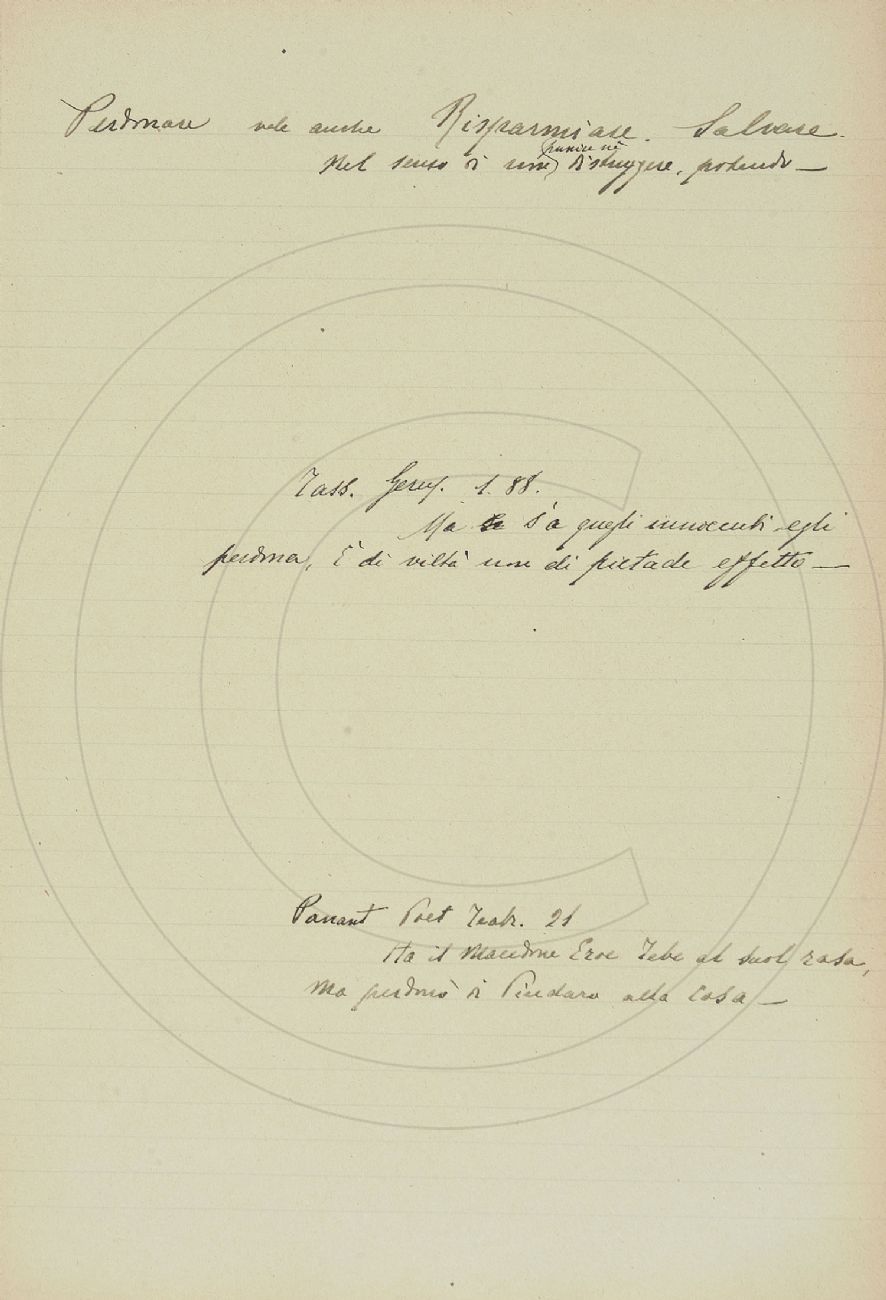 Perdonare vale anche Risparmiare. Salvare.
Nel senso di non punire nè distruggere, potendo —
Tass. Gerus. 1. 88.
Ma s'a quegli innocenti egli
perdona, È di viltà non di pietade effetto —
Panant Poet Teatr. 21
Ha il Macedone Eroe Tebe al suol rasa,
Ma perdonò di Pindaro alla Casa —